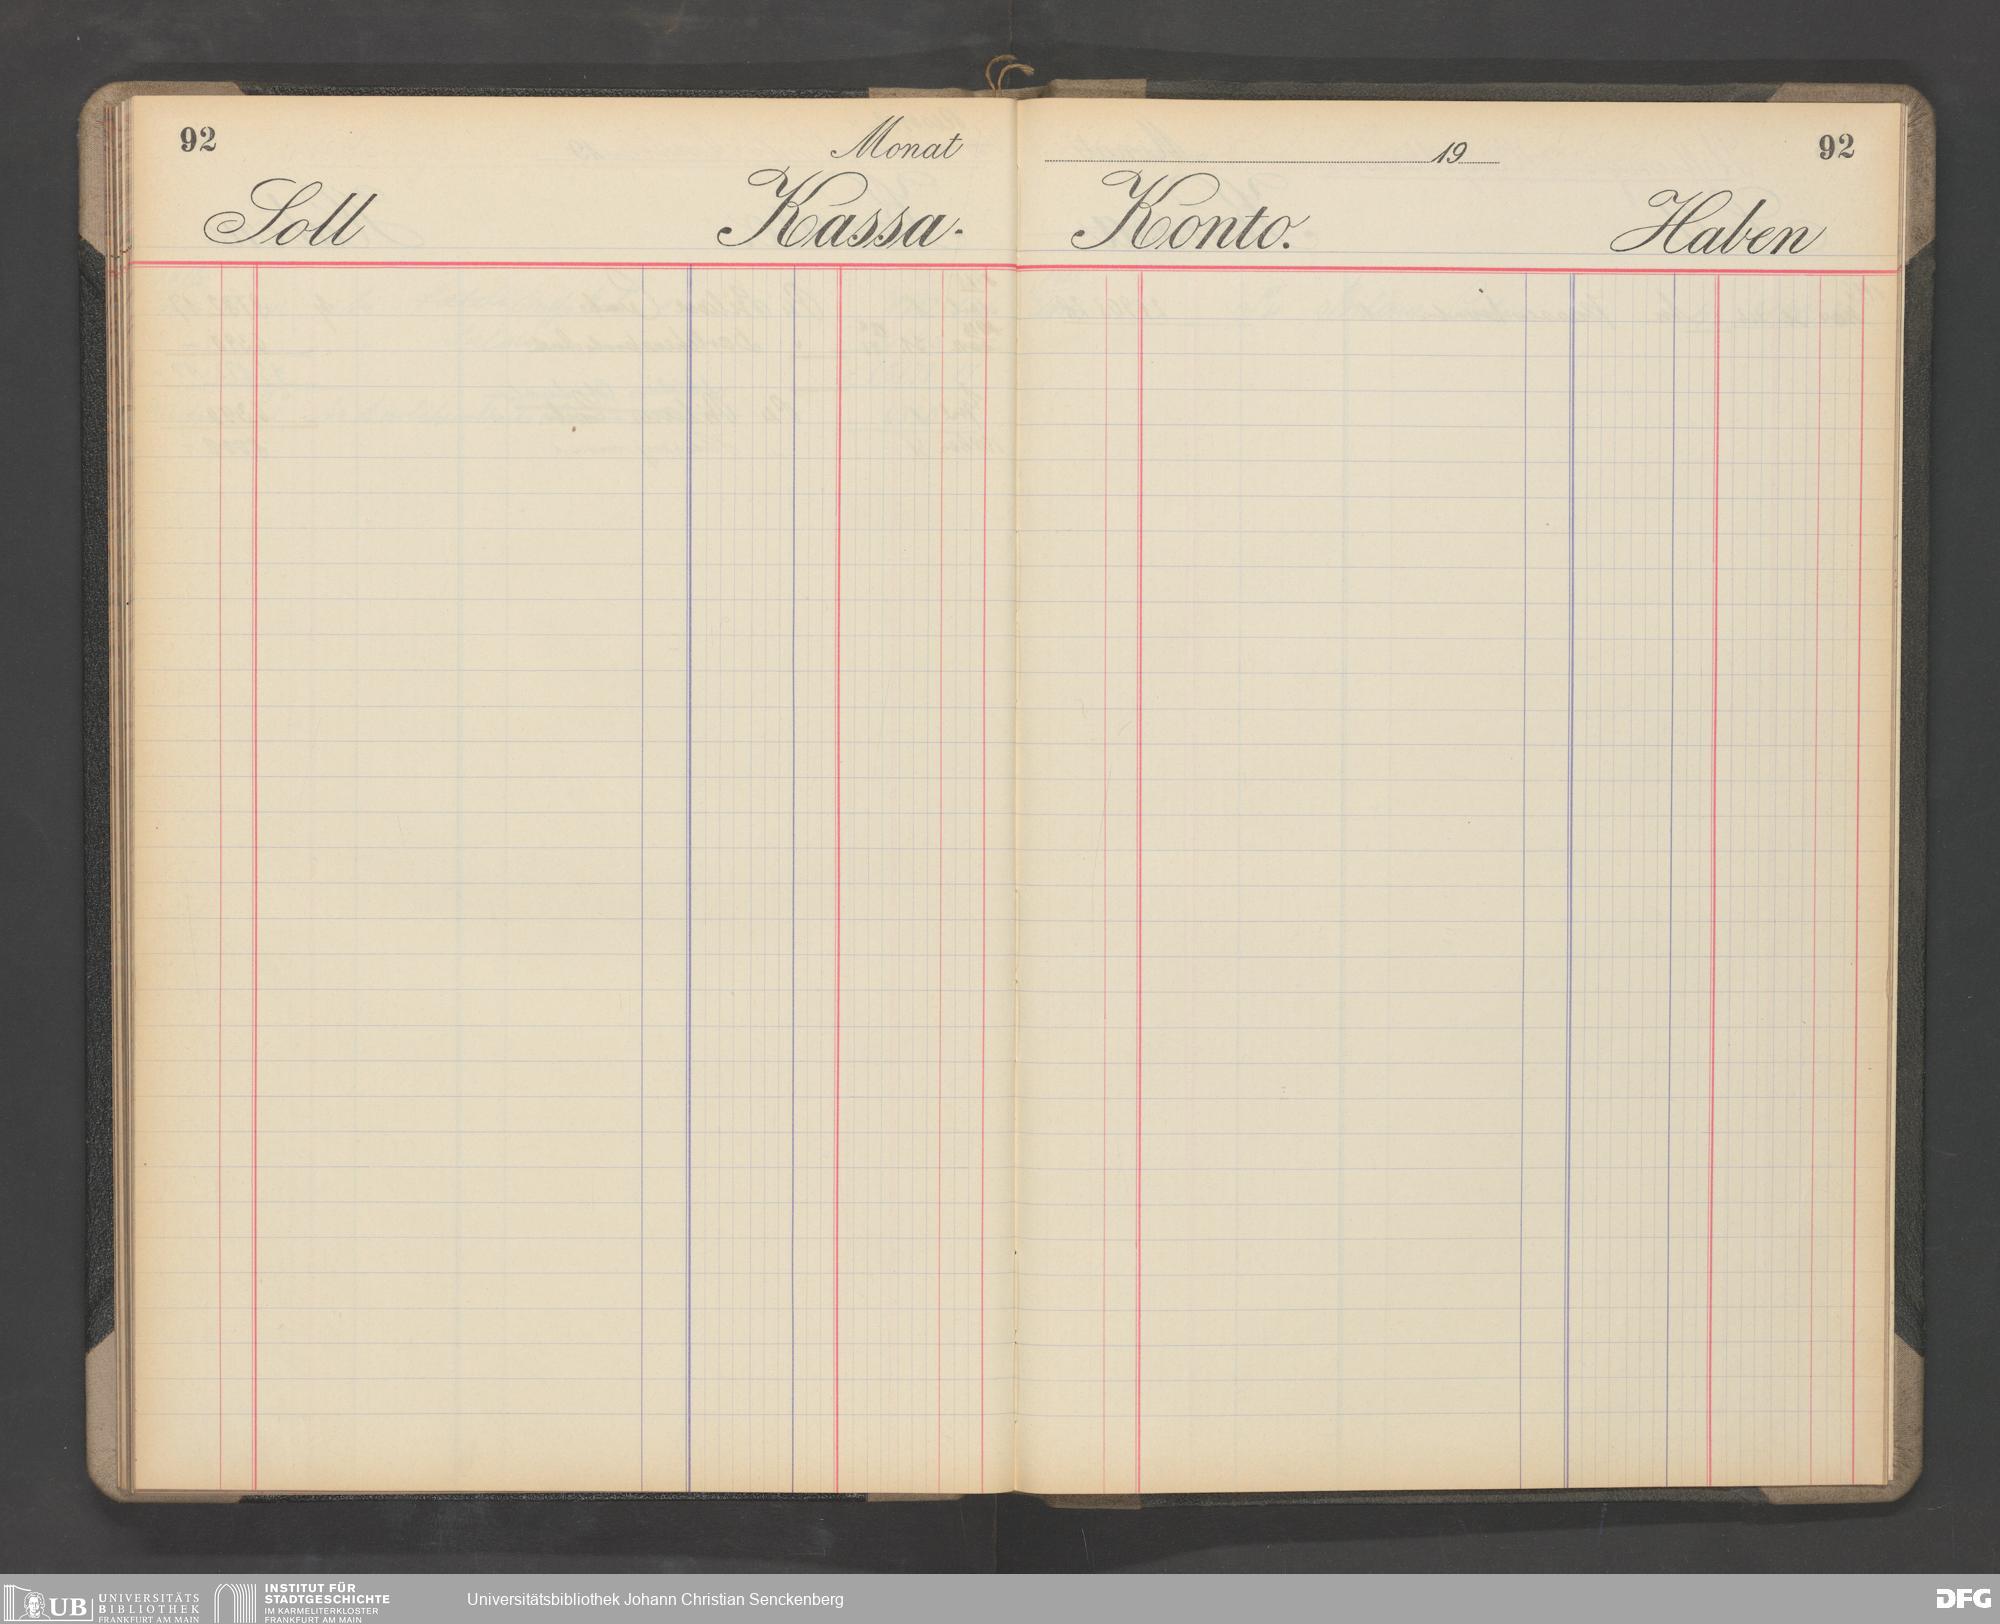 92
Monat
19
92
Soll
Kassa-
Konto.
Haben
UB UNIVERSITÄTS
BIBLIOTHEK
FRANKFURT AM MAIN
INSTITUT FÜR
STADTGESCHICHTE
IM KARMELITERKLOSTER
FRANKFURT AM MAIN
Universitätsbibliothek Johann Christian Senckenberg
DFG